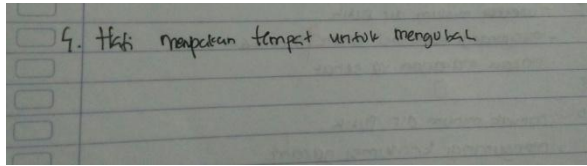 5. Hati merupakan tempat untuk mengubah